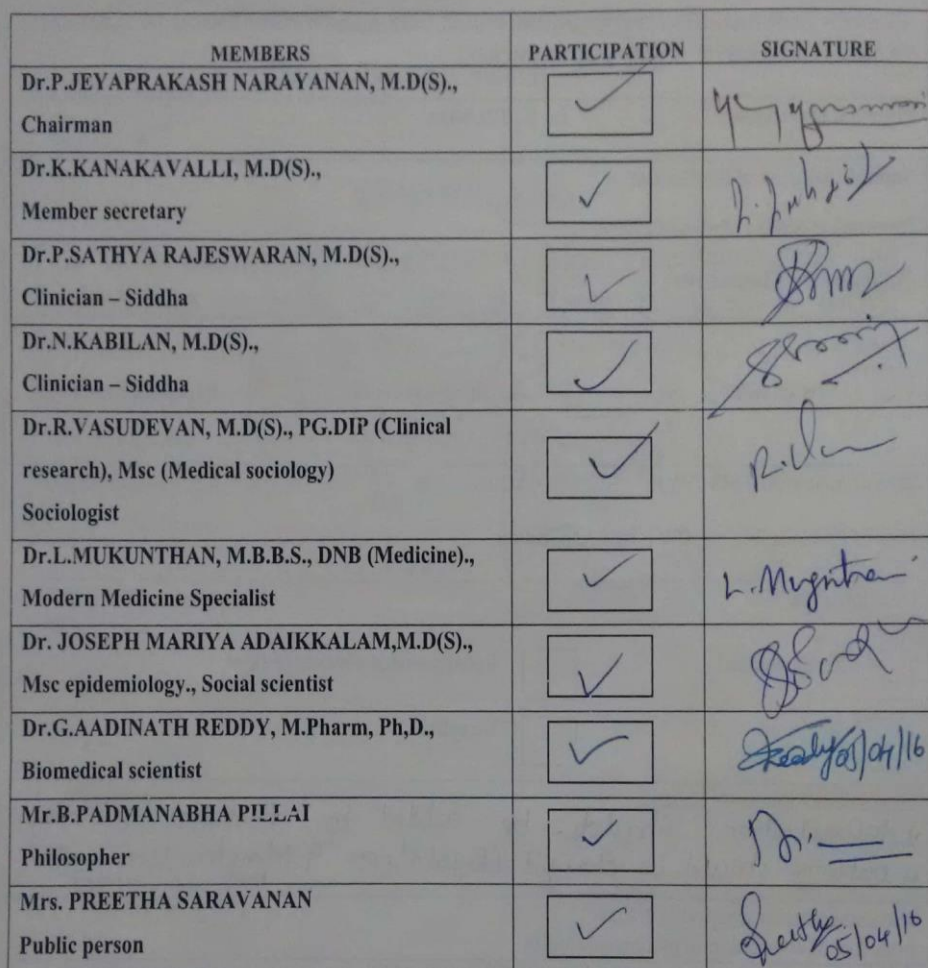 MEMBERS PARTICIPATION SIGNATURE
Dr.P.JEYAPRAKASH NARAYANAN, M.D(S).,
Chairman
Dr.K.KANAKAVALLI, M.D(S).,
Member secretary
Dr.P.SATHYA RAJESWARAN, M.D(S).,
Clinician – Siddha
Dr.N.KABILAN, M.D(S).,
Clinician – Siddha
Dr.R.VASUDEVAN, M.D(S)., PG.DIP (Clinical
research), Msc (Medical sociology)
Sociologist
Dr.L.MUKUNTHAN, M.B.B.S., DNB (Medicine).,
Modern Medicine Specialist
L.
Dr. JOSEPH MARIYA ADAIKKALAM,M.D(S).,
Msc epidemiology., Social scientist
Dr.G.AADINATH REDDY, M.Pharm, Ph,D.,
Biomedical scientist
05/04/16
Mr.B.PADMANABHA PILLAI
Philosopher
Mrs. PREETHA SARAVANAN
Public person
05/04/16